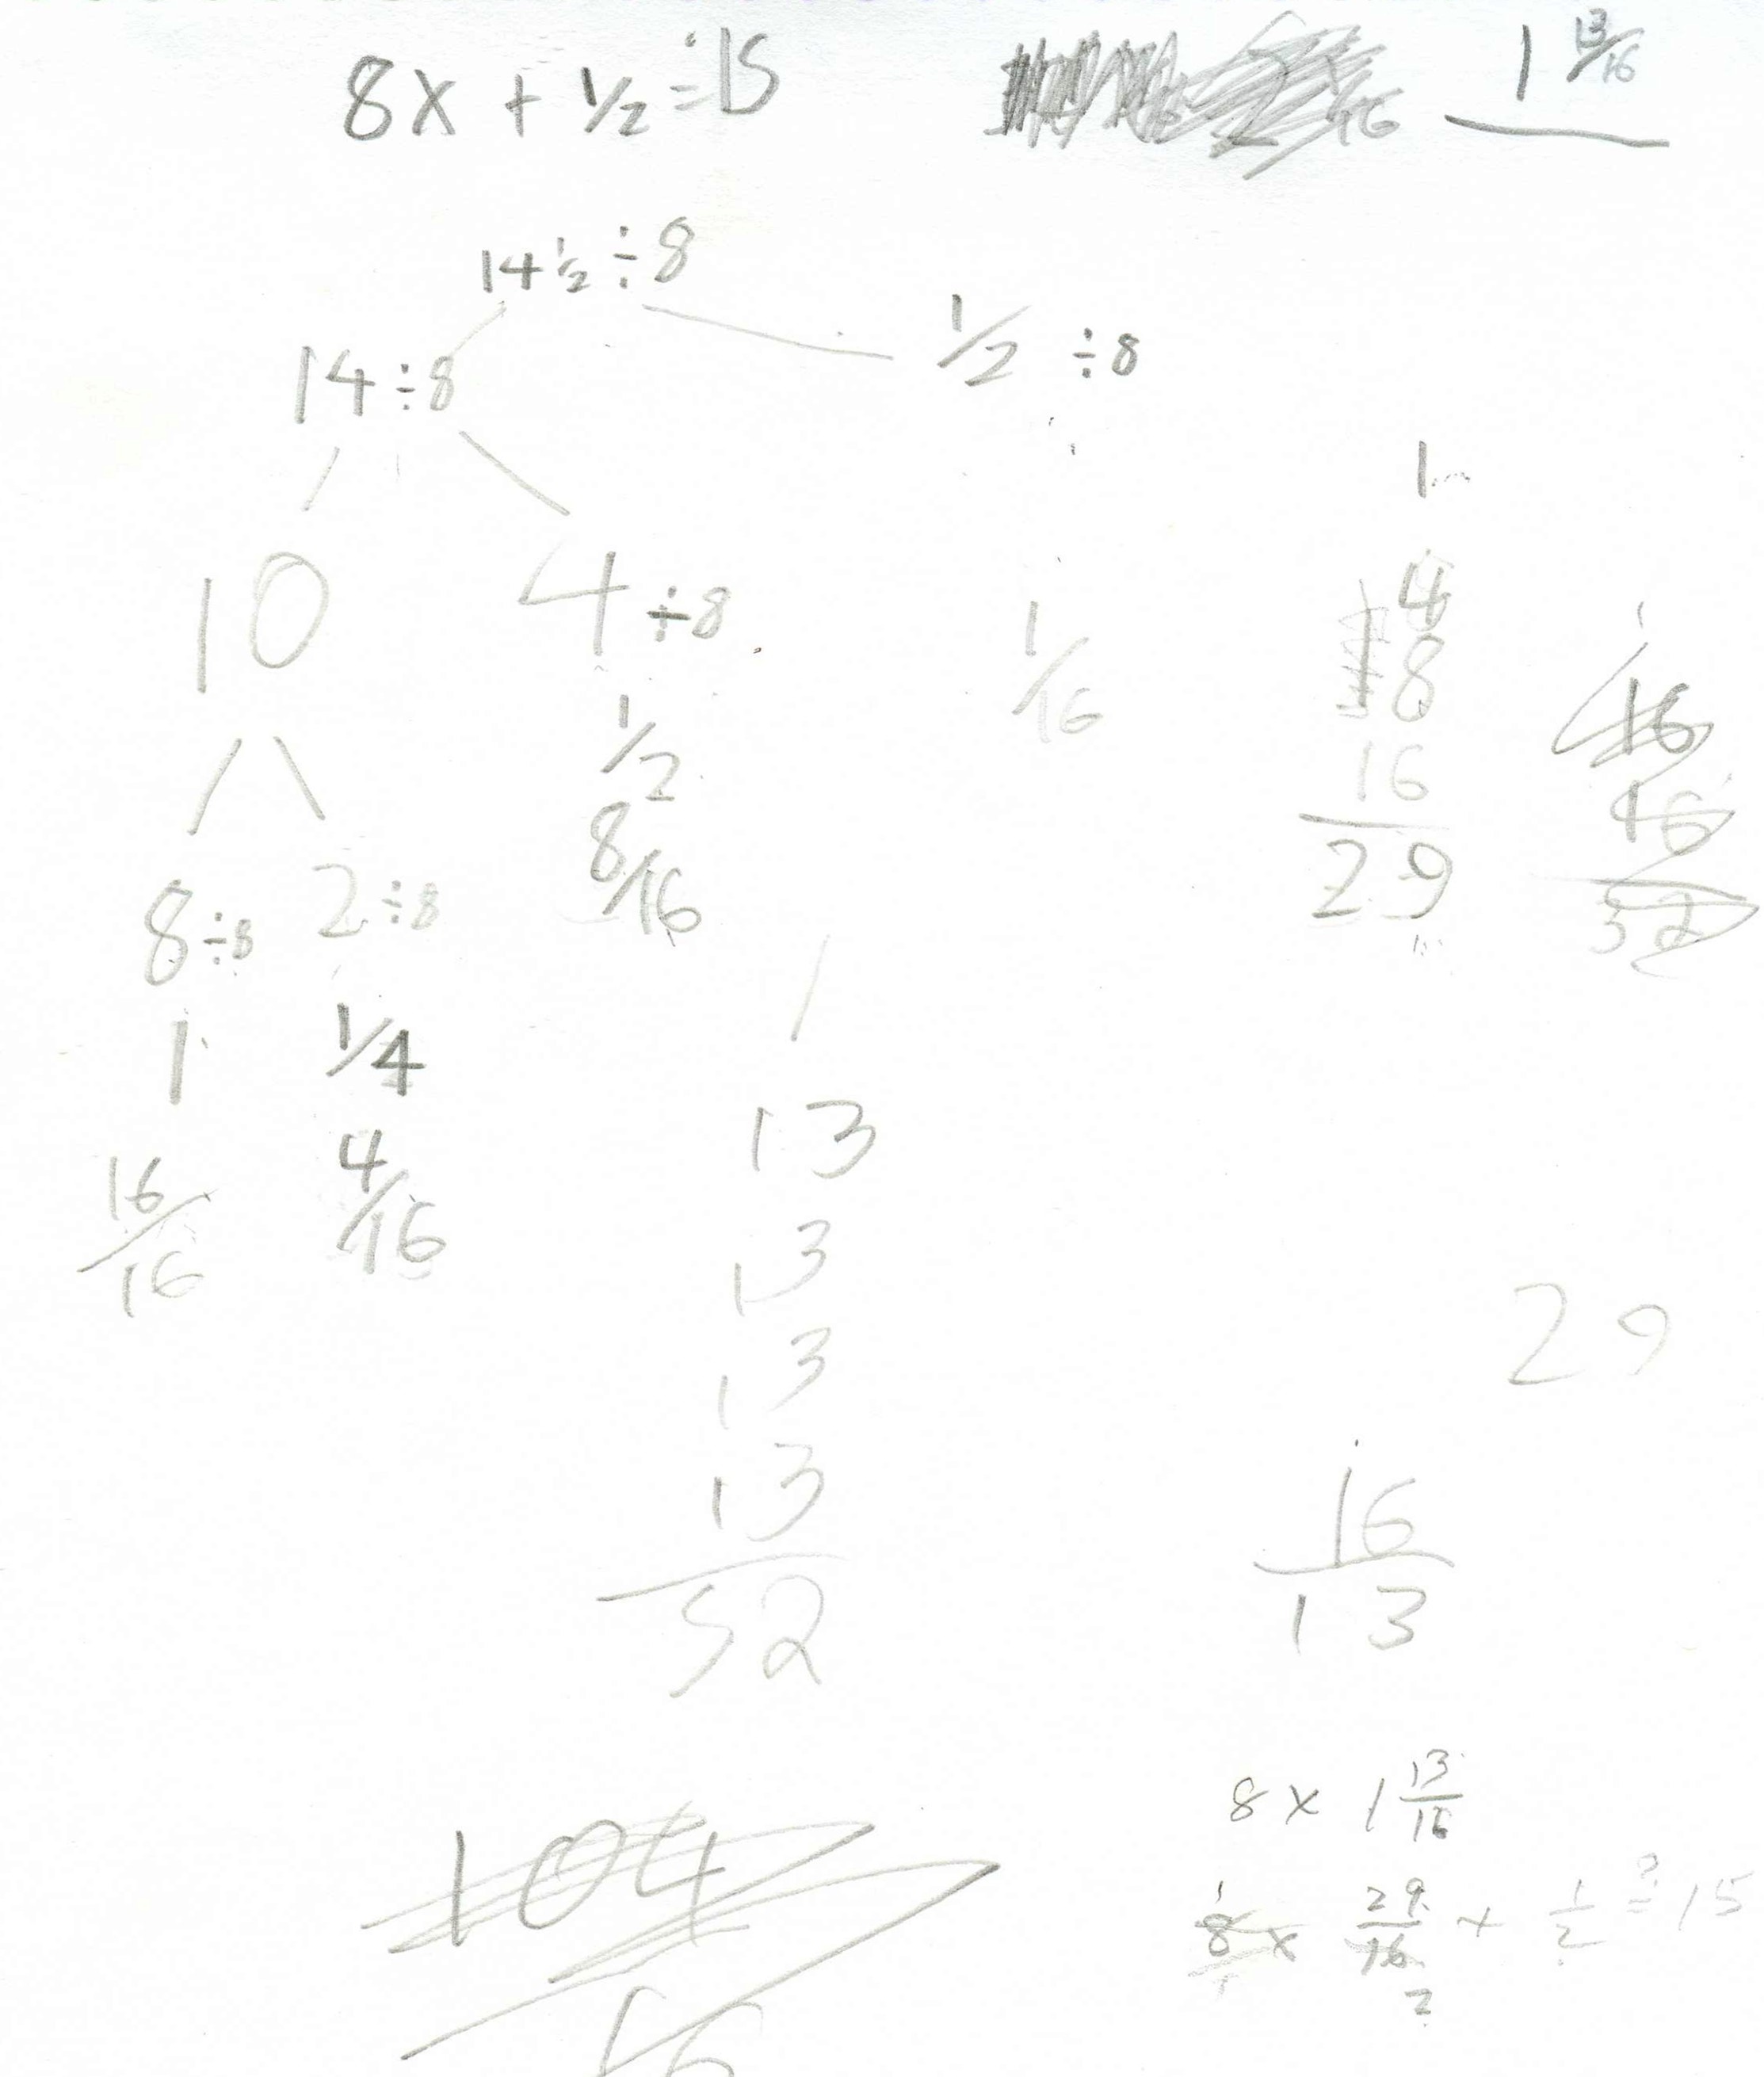 8x + 1/2 = 15
1 13/16
14 1/2 ÷ 8
14 ÷ 8
1/2 ÷ 8
10
4 ÷ 8
1/2
8/16
1/16
8 ÷ 8
2 ÷ 8
1
1/4
16/16
4/16
1
4
8
16
29
16
16
32
13
13
13
13
52
29
16
13
104
16
8 x 1 13/16
1
8 x 29/16 + 1/2 ≟ 15
2